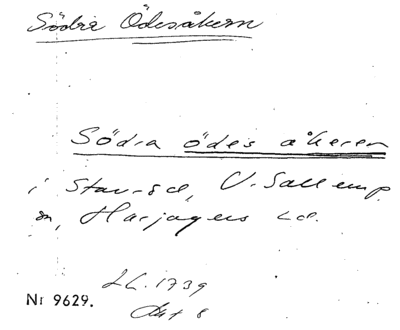 Södra Ödesåkern
Södra ödes åkeren
i Stav-sd, V. Sallerup
sn, Harjagers hd.
LC. 1739
Akt 8
Nr 9629.